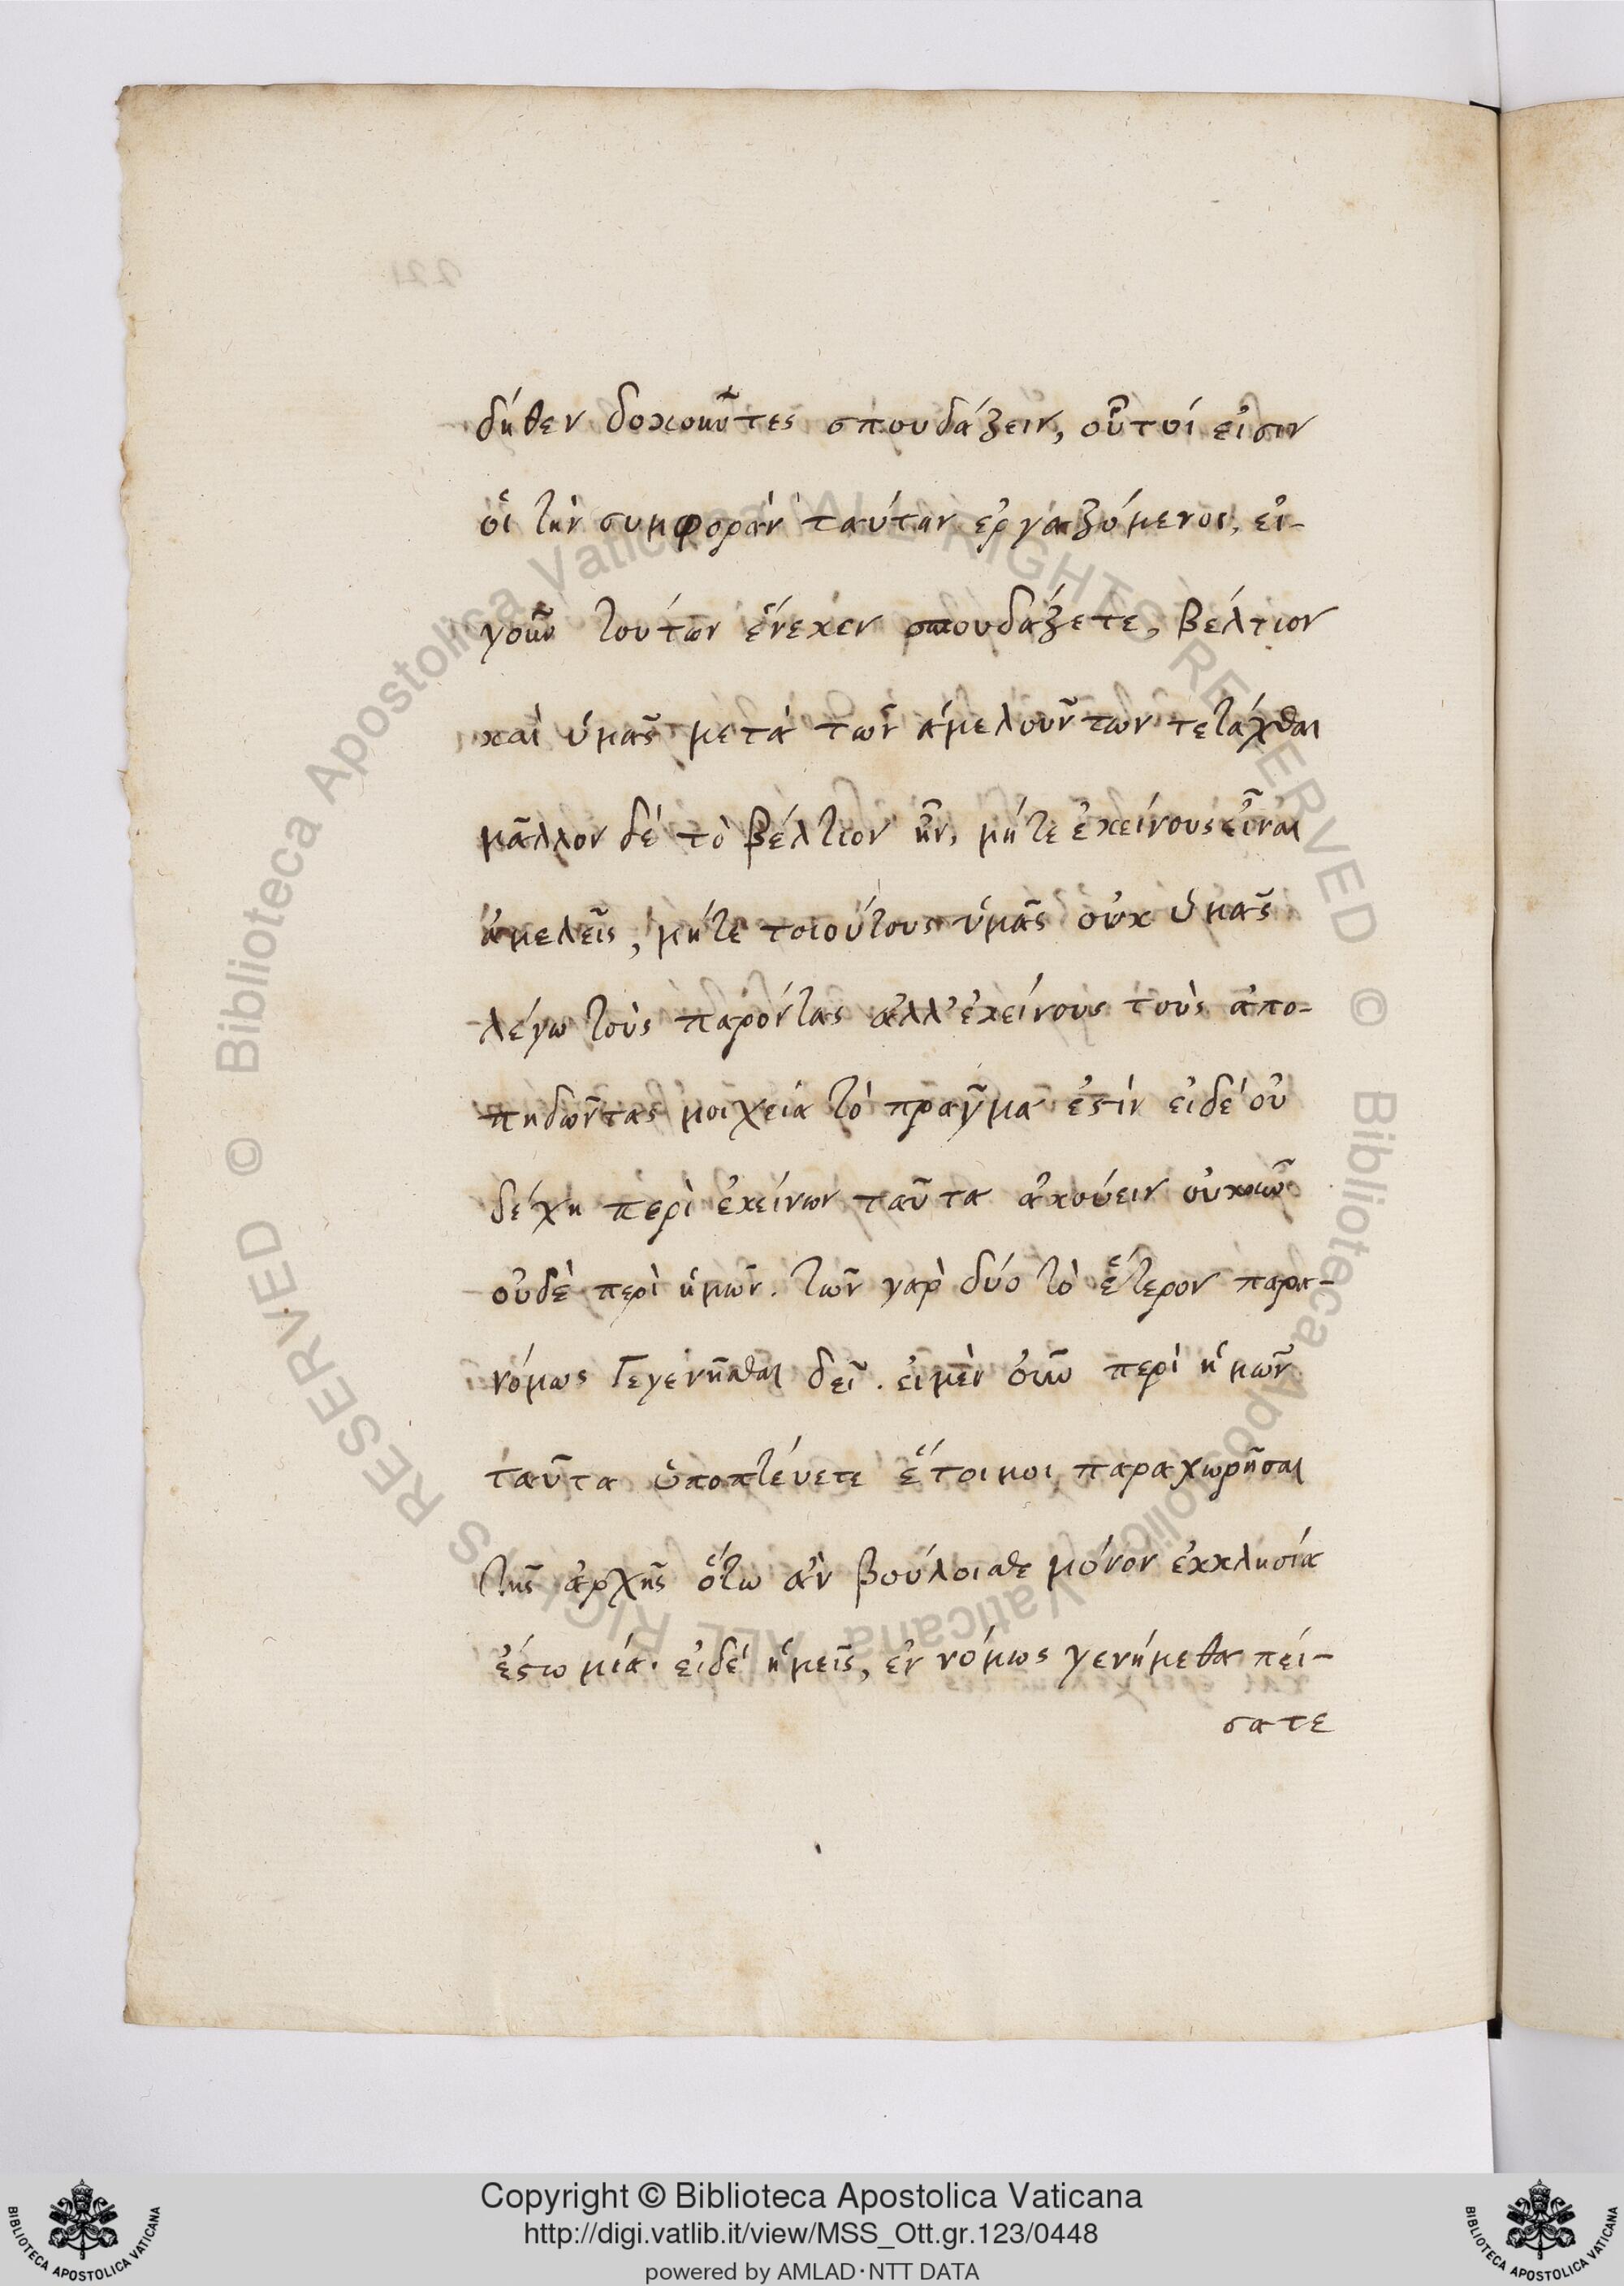 δήθεν δοκοῦντες σπουδάζειν, οὗτοί εἰσιν
οἱ τὴν συμφορὰν ταύταν ἐργαζόμενοι, εἰ-
γοῦν τούτων ἕνεκεν σπουδάζετε, βέλτιον
καὶ ὑμᾶς μετὰ τῶν ἀμελούντων τετάχθαι
μᾶλλον δὲ τὸ βέλτιον ἦν, μήτε ἐκείνους εἶναι
ἀμελεῖς, μήτε τοιούτους ὑμᾶς οὐχ ὑμᾶς
λέγω τοὺς παρόντας ἀλλ' ἐκείνους τοὺς ἀπο-
πηδῶντας μοιχεία τὸ πρᾶγμα ἐστὶν εἰδὲ οὐ
δέχη περὶ ἐκείνων ταῦτα ἀκούειν οὐκοῦν
οὐδὲ περὶ ἡμῶν. τῶν γὰρ δύο τὸ ἕτερον παρα-
νόμως γεγενῆσθαι δεῖ. εἰ μὲν οὖν περὶ ἡμῶν
ταῦτα ὑποπτέυετε ἕτοιμοι παραχωρῆσαι
τῆς ἀρχῆς ὅτω ἂν βούλοισθε μόνον ἐκκλησία
ἔστω μία. εἰδὲ ἡμεῖς, ἐν νόμως γενήμεθα πεί-
σατε
221
Biblioteca Apostolica Vaticana ALL RIGHTS RESERVED ©
Biblioteca Apostolica Vaticana ALL RIGHTS RESERVED ©
Copyright © Biblioteca Apostolica Vaticana
http://digi.vatlib.it/view/MSS_Ott.gr.123/0448
powered by AMLAD·NTT DATA
BIBLIOTECA APOSTOLICA VATICANA
BIBLIOTECA APOSTOLICA VATICANA